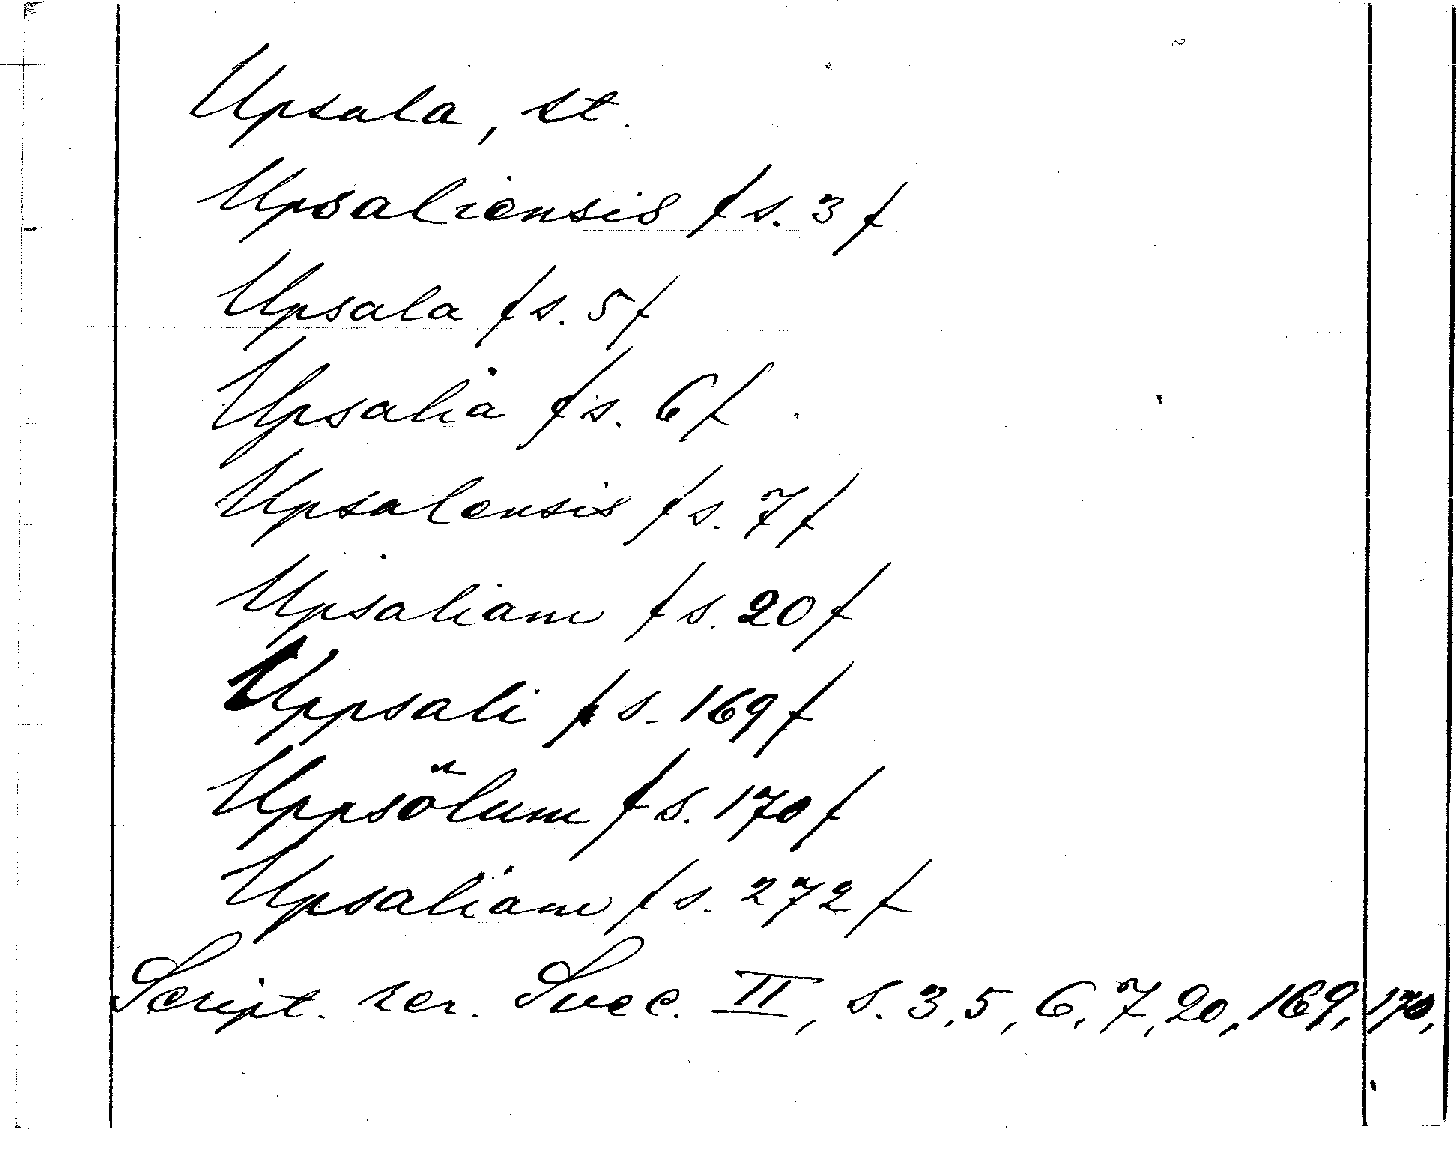 Upsala, st.
Upsaliensis / s. 3 /
Upsala / s. 5 /
Upsalia / s. 6 /
Upsalensis / s. 7 /
Upsaliam / s. 20 /
Uppsali / s. 169 /
Uppsölum / s. 170 /
Upsaliam / s. 272 /
Script. rer. Svec. II, s. 3, 5, 6, 7, 20, 169, 170,